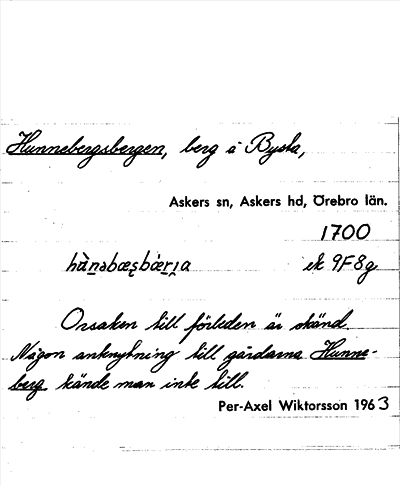 Hunnebergsbergen, berg å Bysta,
Askers sn, Askers hd, Örebro län.
1700
ek 9F8g
Orsaken till förleden är okänd.
Någon anknytning till gårdarna Hunne-
berg kände man inte till.
Per-Axel Wiktorsson 1963